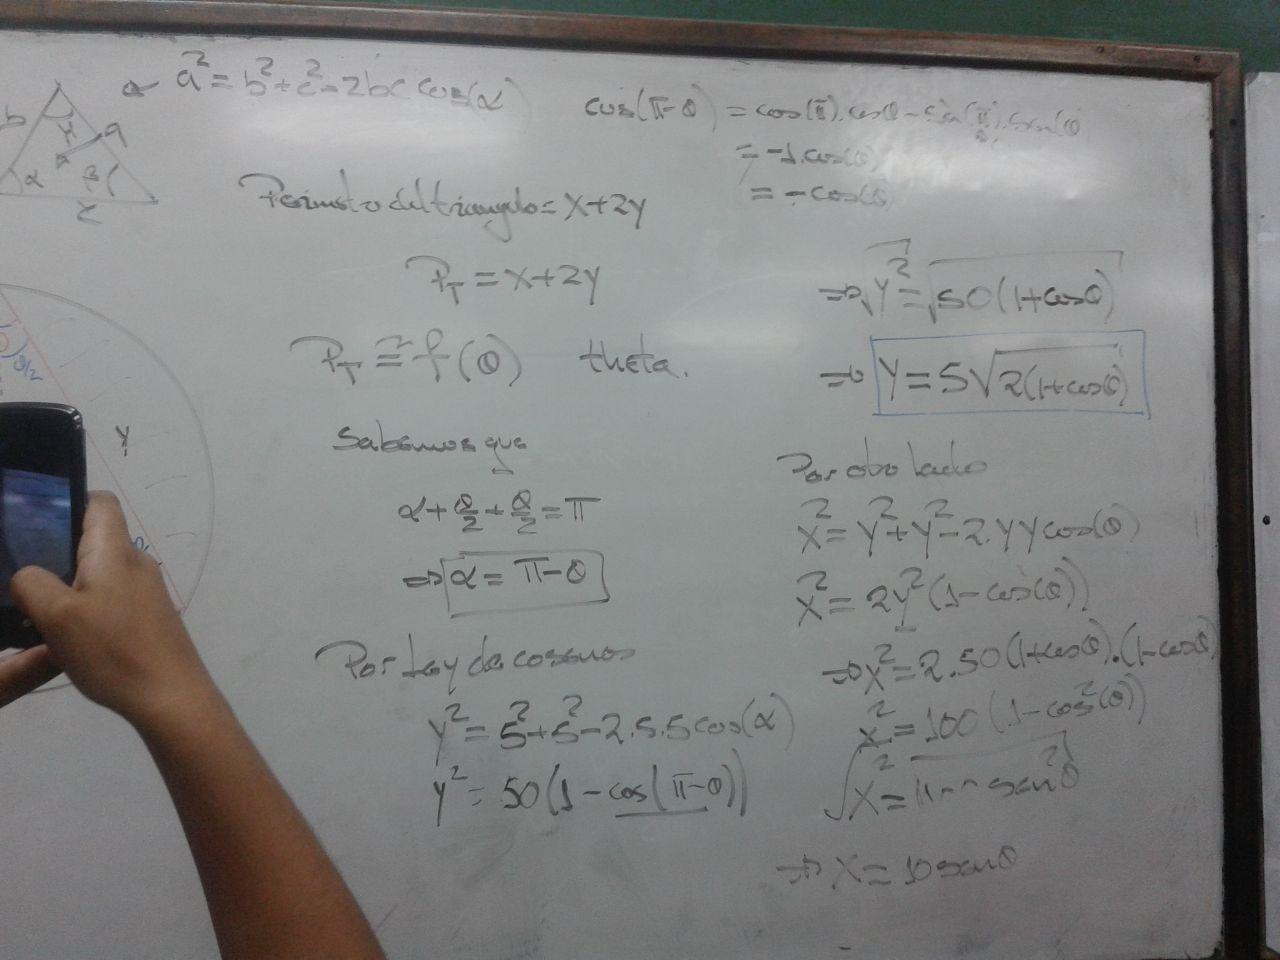 a² = b² + c² - 2bc cos(α)
b
a
α
β
c
cos(π-θ) = cos(π).cosθ - sin(π).sen(θ)
= -1.cos(θ)
= -cos(θ)
Perimetro del triangulo = x+2y
P_T = x+2y
P_T = f(θ) theta.
Sabemos que
α + θ/2 + θ/2 = π
⇒ α = π-θ
Por Ley de cosenos
y² = 5² + 5² - 2.5.5 cos(α)
y² = 50(1 - cos(π-θ))
⇒ √y² = √50(1+cosθ)
⇒ y = 5√2(1+cosθ)
Por otro lado
x² = y² + y² - 2.yy cos(θ)
x² = 2y²(1-cos(θ))
⇒ x² = 2.50(1+cosθ).(1-cosθ)
x² = 100(1-cos²(θ))
√x² = sen²θ
⇒ x = 10 senθ
θ/2
y